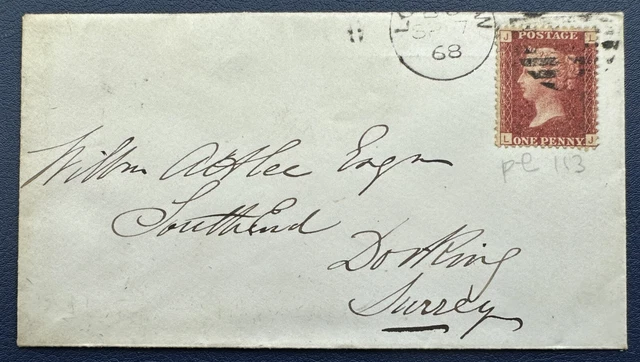 LONDON
SP 7
68
J L
POSTAGE
L J
ONE PENNY
pl 113
Esqr
South End
Dorking
Surrey